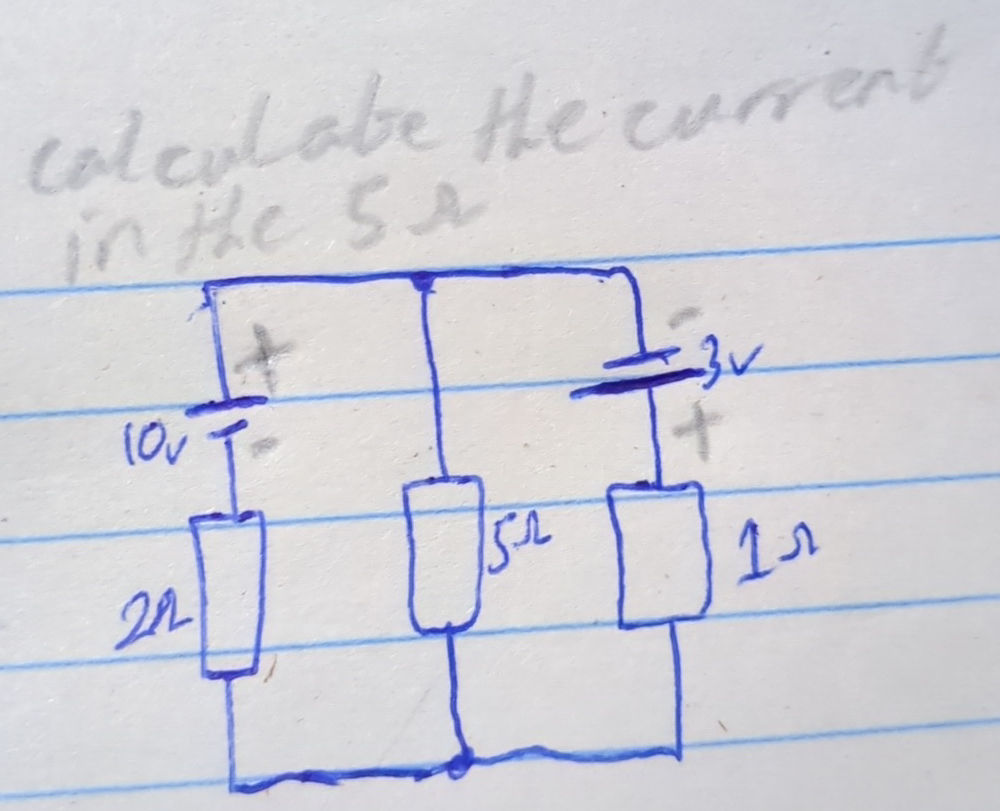 calculate the current
in the 5Ω
+
-
3v
10v
-
+
5Ω
1Ω
2Ω